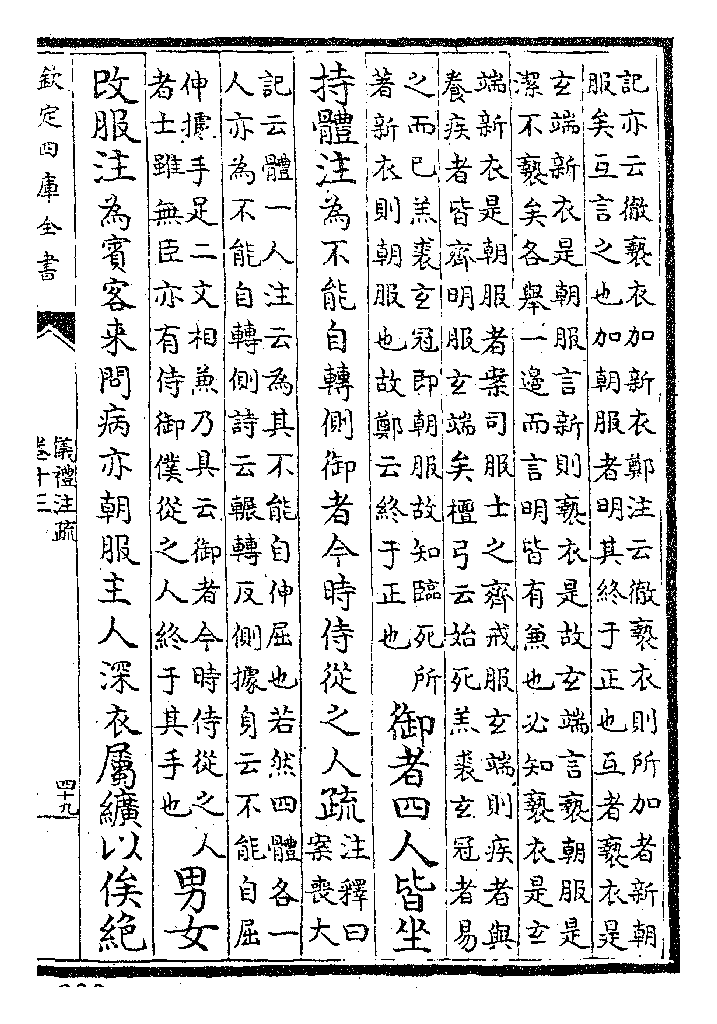 記亦云徹褻衣加新衣鄭注云徹褻衣則所加者新朝
服矣互言之也加朝服者明其終于正也互者褻衣是
玄端新衣是朝服言新則褻衣是故玄端言褻朝服是
潔不褻矣各舉一邉而言明皆有兼也必知褻衣是玄
端新衣是朝服者案司服士之齊戒服玄端則疾者與
養疾者皆齊明服玄端矣檀弓云始死羔裘玄冠者易
之而已羔裘玄冠即朝服故知臨死所
著新衣則朝服也故鄭云終于正也
御者四人皆坐
持體注為不能自轉側御者今時侍從之人疏
注釋曰
案喪大
記云體一人注云為其不能自伸屈也若然四體各一
人亦為不能自轉側詩云輾轉反側據身云不能自屈
伸據手足二文相兼乃具云御者今時侍從之人
者士雖無臣亦有侍御僕從之人終于其手也
男女
改服注為賓客来問病亦朝服主人深衣屬纊以俟絶
欽定四庫全書
儀禮注疏
卷十三
四十九